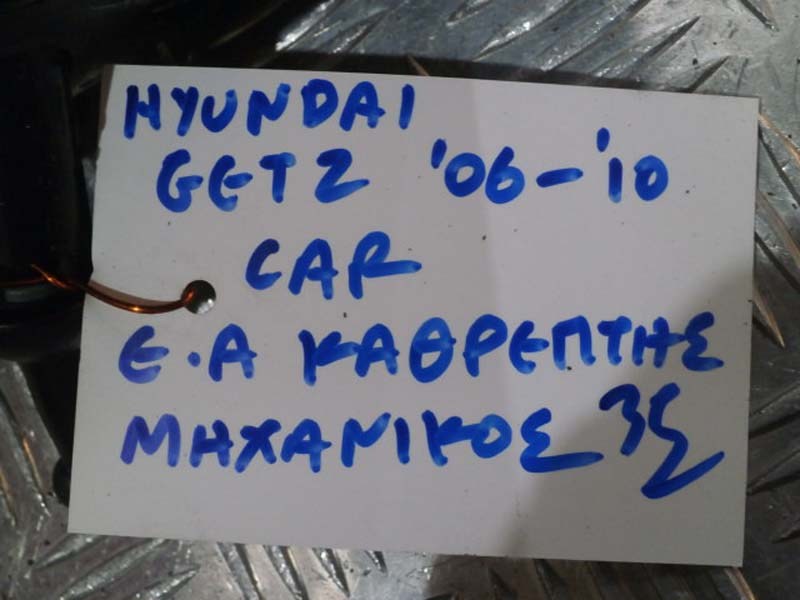 HYUNDAI
GETZ '06-'10
CAR
Ε.Α ΚΑΘΡΕΠΤΗΣ
ΜΗΧΑΝΙΚΟΣ